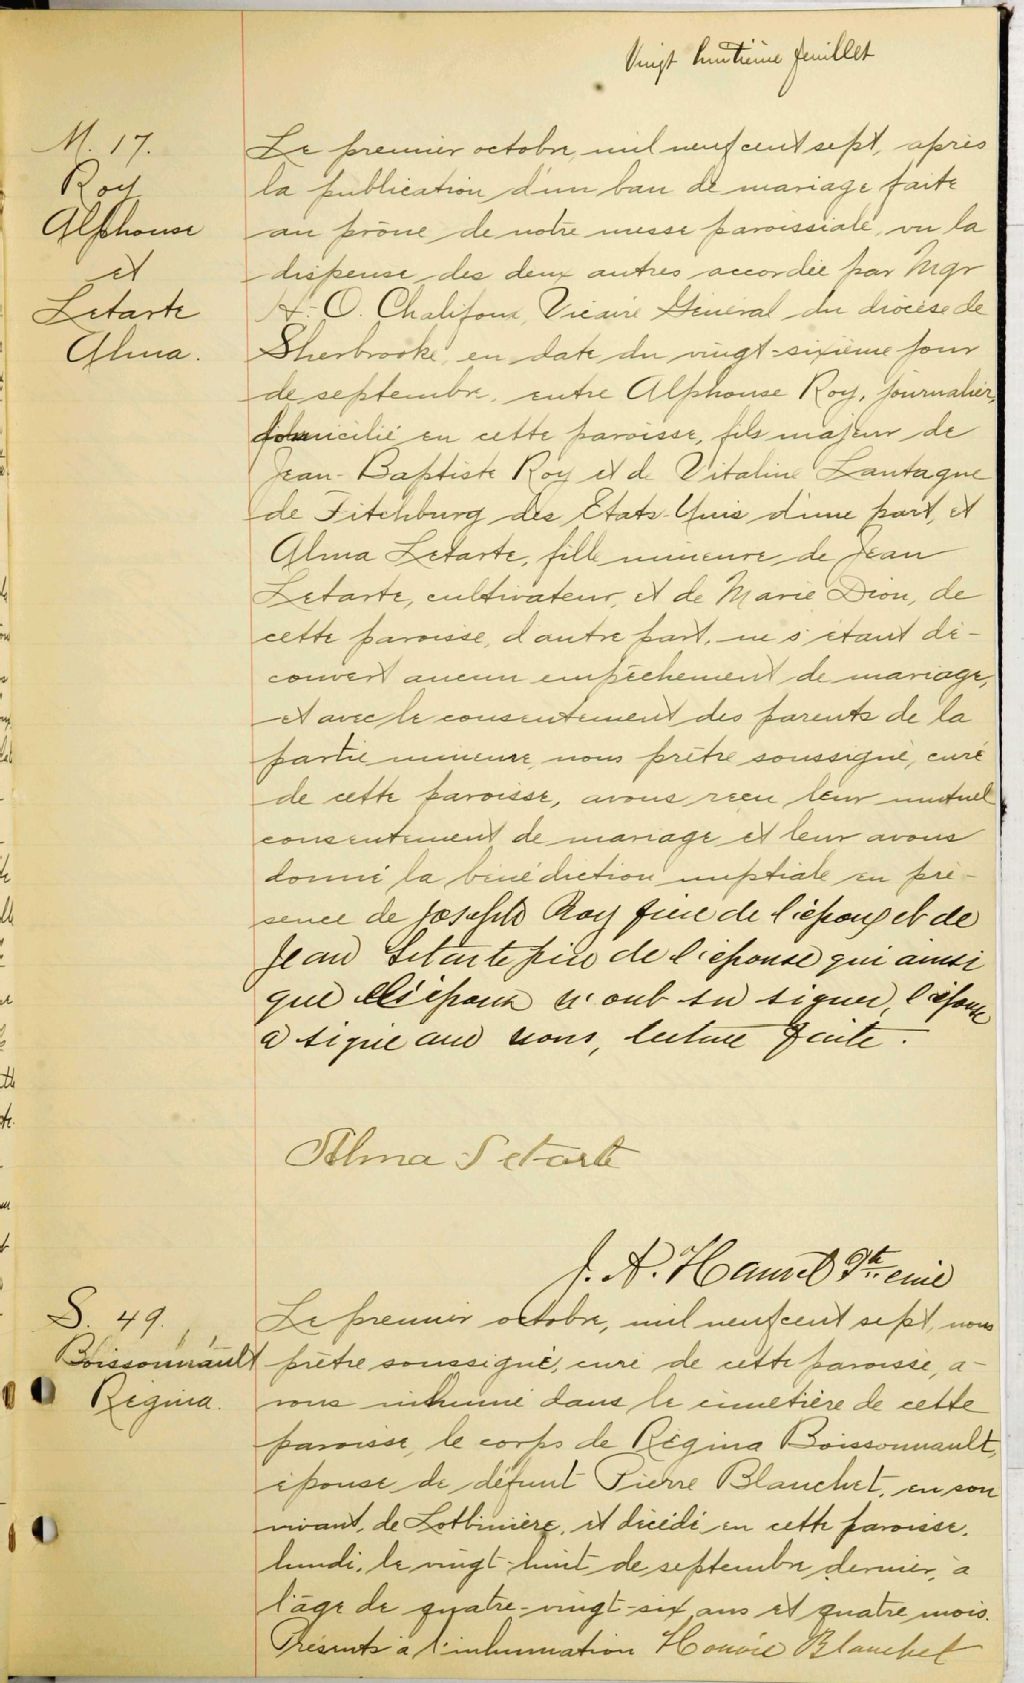 Vingt huitième feuillet
M. 17.
Roy
Alphonse
et
Letarte
Alma.
Le premier octobre, mil neuf cent sept, après
la publication d'un ban de mariage faite
au prône de notre messe paroissiale, vu la
dispense des deux autres accordée par Mgr
H. O. Chalifoux, Vicaire Général du diocèse de
Sherbrooke, en date du vingt-sixième jour
de septembre, entre Alphonse Roy, journalier,
domicilié en cette paroisse, fils majeur de
Jean-Baptiste Roy et de Vitaline Lantagne
de Fitchburg des Etats-Unis d'une part, et
Alma Letarte, fille mineure de Jean
Letarte, cultivateur, et de Marie Dion, de
cette paroisse, d'autre part, ne s'étant dé-
couvert aucun empêchement de mariage,
et avec le consentement des parents de la
partie mineure, nous prêtre soussigné, curé
de cette paroisse, avons reçu leur mutuel
consentement de mariage et leur avons
donné la bénédiction nuptiale en pré-
sence de Joseph Roy frère de l'époux et de
Jean Letarte père de l'épouse qui ainsi
que l'époux n'ont su signer, l'épouse
a signé avec nous, lecture faite.
Alma Letarte
J. A. Hamel Ptre curé
S. 49.
Boissonnault
Régina.
Le premier octobre, mil neuf cent sept, nous
prêtre soussigné, curé de cette paroisse, a-
vons inhumé dans le cimetière de cette
paroisse, le corps de Régina Boissonnault,
épouse de défunt Pierre Blanchet, en son
vivant, de Lotbinière, et décédé en cette paroisse,
lundi, le vingt-huit de septembre dernier, à
l'âge de quatre-vingt-six ans et quatre mois.
Présents à l'inhumation Honoré Blanchet